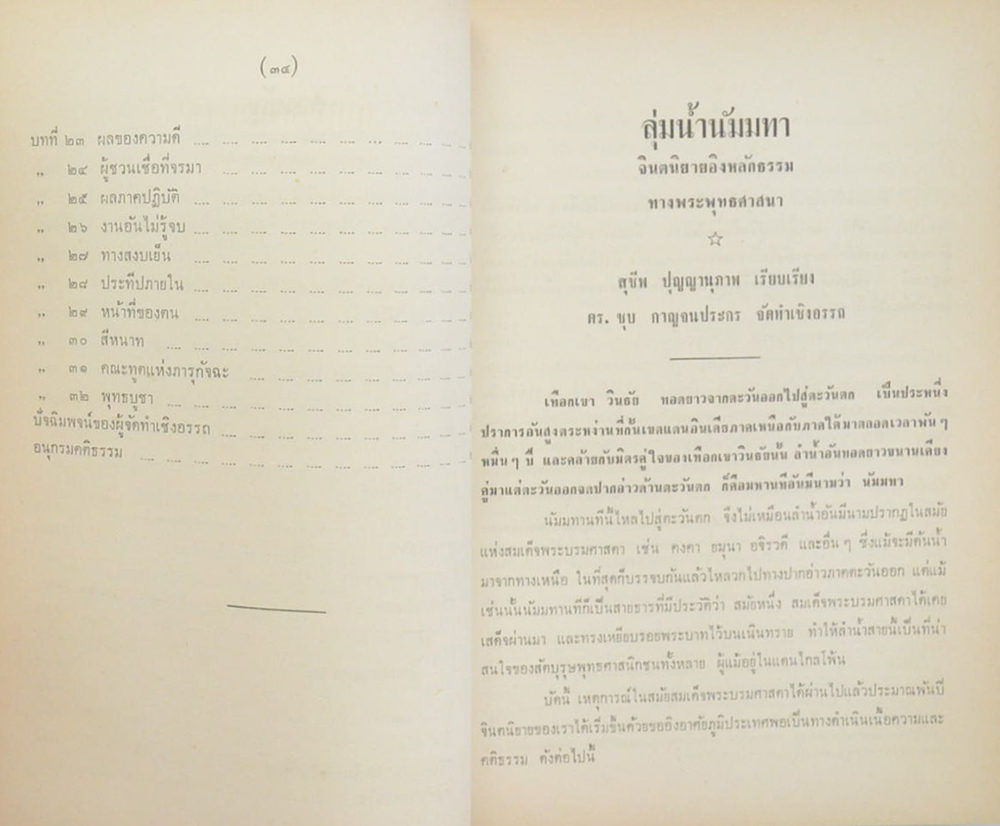 (๓๔)
บทที่ ๒๓ ผลของความดี .... .... .... .... .... .... ... .... .... ....
„ ๒๔ ผู้ชวนเชื่อที่จรมา .... .... .... .... .... .... .... .... ....
„ ๒๕ ผลภาคปฏิบัติ .... .... .... .... .... .... .... .... .... ....
„ ๒๖ งานอันไม่รู้จบ .... .... .... .... .... .... .... .... .... ....
„ ๒๗ ทางสงบเย็น .... .... .... .... .... .... .... .... .... ....
„ ๒๘ ประทีปภายใน .... .... .... .... .... .... .... .... .... ....
„ ๒๙ หน้าที่ของตน .... .... .... .... .... .... .... .... .... ....
„ ๓๐ สีหนาท .... .... .... .... .... .... .... .... .... .... ....
„ ๓๑ คณะทูตแห่งภารุกัจฉะ .... .... .... .... .... .... .... ....
„ ๓๒ พุทธบูชา .... .... .... .... .... .... .... .... .... .... ....
ปัจฉิมพจน์ของผู้จัดทำเชิงอรรถ .... .... .... .... .... .... .... .... ....
อนุกรมคติธรรม .... .... .... .... .... .... .... .... .... .... .... ....
ลุ่มน้ำนัมมทา
จินตนิยายอิงหลักธรรม
ทางพระพุทธศาสนา
☆
สุชีพ ปุญญานุภาพ เรียบเรียง
ดร. ชุบ กาญจนประกร จัดทำเชิงอรรถ
เทือกเขา วินธัย ทอดยาวจากตะวันออกไปสู่ตะวันตก เป็นประหนึ่ง
ปราการอันสูงตระหง่านที่กั้นเขตแดนอินเดียภาคเหนือกับภาคใต้มาตลอดเวลาพัน ๆ
หมื่น ๆ ปี และคล้ายกับมิตรคู่ใจของเทือกเขาวินธัยนั้น ลำน้ำอันทอดยาวขนานเคียง
คู่มาแต่ตะวันออกจดปากอ่าวด้านตะวันตก ก็คือมหานทีอันมีนามว่า นัมมทา
นัมมทานทีนี้ไหลไปสู่ตะวันตก จึงไม่เหมือนลำน้ำอันมีนามปรากฏในสมัย
แห่งสมเด็จพระบรมศาสดา เช่น คงคา ยมุนา อจิรวดี และอื่น ๆ ซึ่งแม้จะมีต้นน้ำ
มาจากทางเหนือ ในที่สุดก็บรรจบกันแล้วไหลวกไปทางปากอ่าวภาคตะวันออก แต่แม้
เช่นนั้นนัมมทานทีก็เป็นสายธารที่มีประวัติว่า สมัยหนึ่ง สมเด็จพระบรมศาสดาได้เคย
เสด็จผ่านมา และทรงเหยียบรอยพระบาทไว้บนเนินทราย ทำให้ลำน้ำสายนี้เป็นที่น่า
สนใจของสัตบุรุษพุทธศาสนิกชนทั้งหลาย ผู้แม้อยู่ในแดนไกลโพ้น
บัดนี้ เหตุการณ์ในสมัยสมเด็จพระบรมศาสดาได้ผ่านไปแล้วประมาณพันปี
จินตนิยายของเราได้เริ่มขึ้นด้วยขออิงอาศัยภูมิประเทศพอเป็นทางดำเนินเนื้อความและ
คติธรรม ดังต่อไปนี้